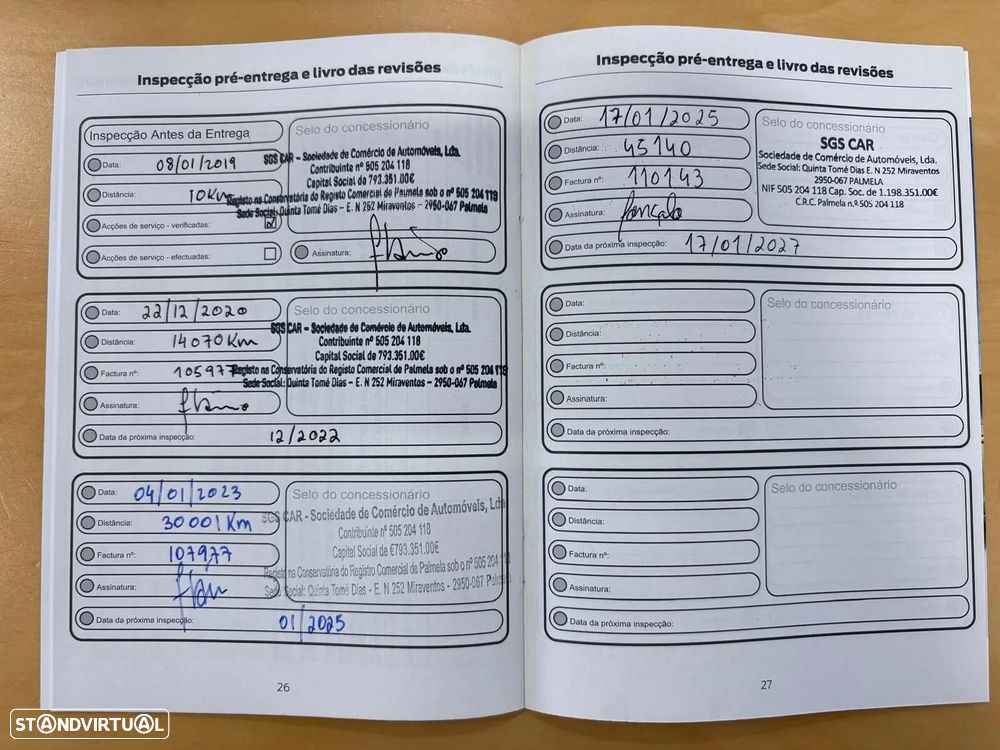 Inspecção pré-entrega e livro das revisões
Inspecção Antes da Entrega
Data: 08/01/2019
Distância: 10Km
Acções de serviço - verificadas:
Acções de serviço - efectuadas:
Selo do concessionário
SGS CAR – Sociedade de Comércio de Automóveis, Lda.
Contribuinte nº 505 204 118
Capital Social de 793.351.00€
Registo na Conservatória do Registo Comercial de Palmela sob o nº 505 204 118
Sede Social: Quinta Tomé Dias – E. N 252 Miraventos – 2950-067 Palmela
Assinatura:
Data: 22/12/2020
Distância: 14070Km
Factura nº: 105977
Assinatura:
Data da próxima inspecção: 12/2022
Selo do concessionário
SGS CAR – Sociedade de Comércio de Automóveis, Lda.
Contribuinte nº 505 204 118
Capital Social de 793.351.00€
Registo na Conservatória do Registo Comercial de Palmela sob o nº 505 204 118
Sede Social: Quinta Tomé Dias – E. N 252 Miraventos – 2950-067 Palmela
Data: 04/01/2023
Distância: 30001Km
Factura nº: 107977
Assinatura:
Data da próxima inspecção: 01/2025
Selo do concessionário
SGS CAR - Sociedade de Comércio de Automóveis, Lda
Contribuinte nº 505 204 118
Capital Social de €793.351.00€
Registo na Conservatória do Registo Comercial de Palmela sob o nº 505 204 118
Sede Social: Quinta Tomé Dias - E. N 252 Miraventos - 2950-067 Palmela
26
Inspecção pré-entrega e livro das revisões
Data: 17/01/2025
Distância: 45140
Factura nº: 110143
Assinatura: Gonçalo
Data da próxima inspecção: 17/01/2027
Selo do concessionário
SGS CAR
Sociedade de Comércio de Automóveis, Lda.
Sede Social: Quinta Tomé Dias E. N 252 Miraventos
2950-067 PALMELA
NIF 505 204 118 Cap. Soc. de 1.198.351.00€
C.R.C. Palmela n.º 505 204 118
Data:
Distância:
Factura nº:
Assinatura:
Data da próxima inspecção:
Selo do concessionário
Data:
Distância:
Factura nº:
Assinatura:
Data da próxima inspecção:
Selo do concessionário
27
STANDVIRTUAL